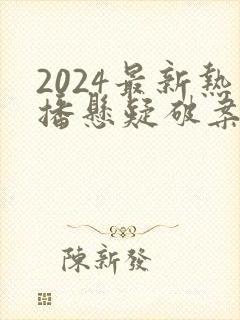 2024最新熱
播懸疑破案
陳新發